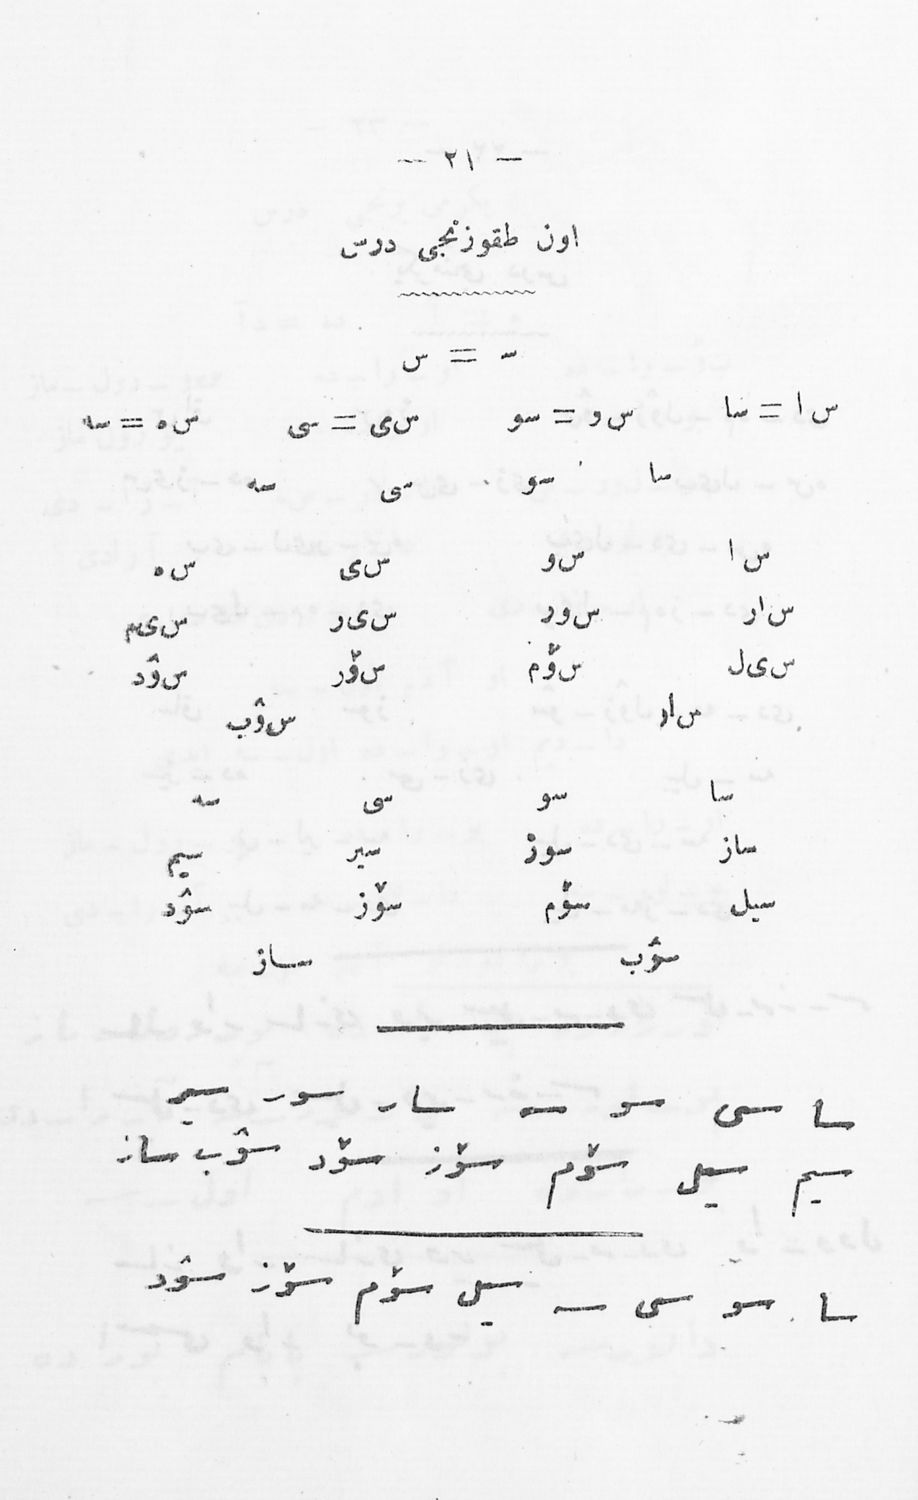 — ٢١ —
اون طقوزنجی درس
سـ = س
س ا = سا س و = سو س ی = سی س ه = سه
سا سو سی سه
س ا س و س ی س ه
س ار س ور س ی ر س ی م
س ی ل س ۆ م س ۆ ر س ۆ د
س از س ۆ ب
سا سو سی سه
ساز سوز سیر سیم
سیل سۆم سۆز سۆد
سۆب ساز
سا سی سو سه سار سور سیر
سیم سیل سۆم سۆز سۆد سۆب ساز
سا سو سی سه سیل سۆم سۆز سۆد